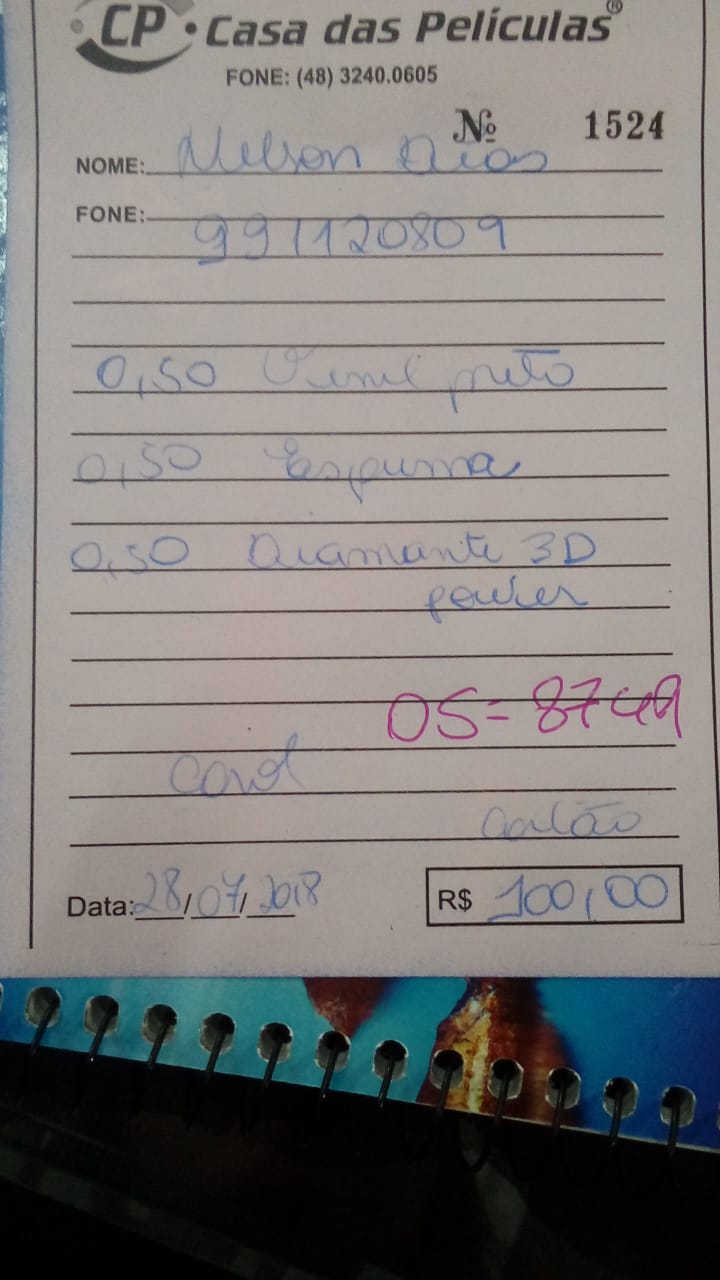 CP • Casa das Películas®
FONE: (48) 3240.0605
Nº 1524
NOME: Nelson Dias
FONE:
991120809
0,50 Vinil preto
0,50 Espuma
0,50 Diamante 3D
OS= 8749
Cartão
Data: 28/07/2018 R$ 100,00